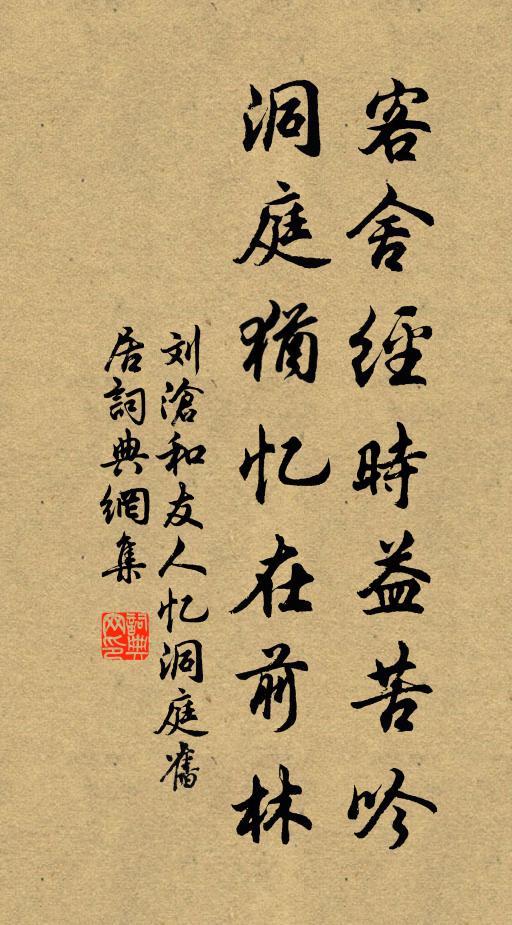 客舍經時益苦吟
洞庭猶忆在前林
刘滄和友人忆洞庭舊
居詞典網集
詞典
网印